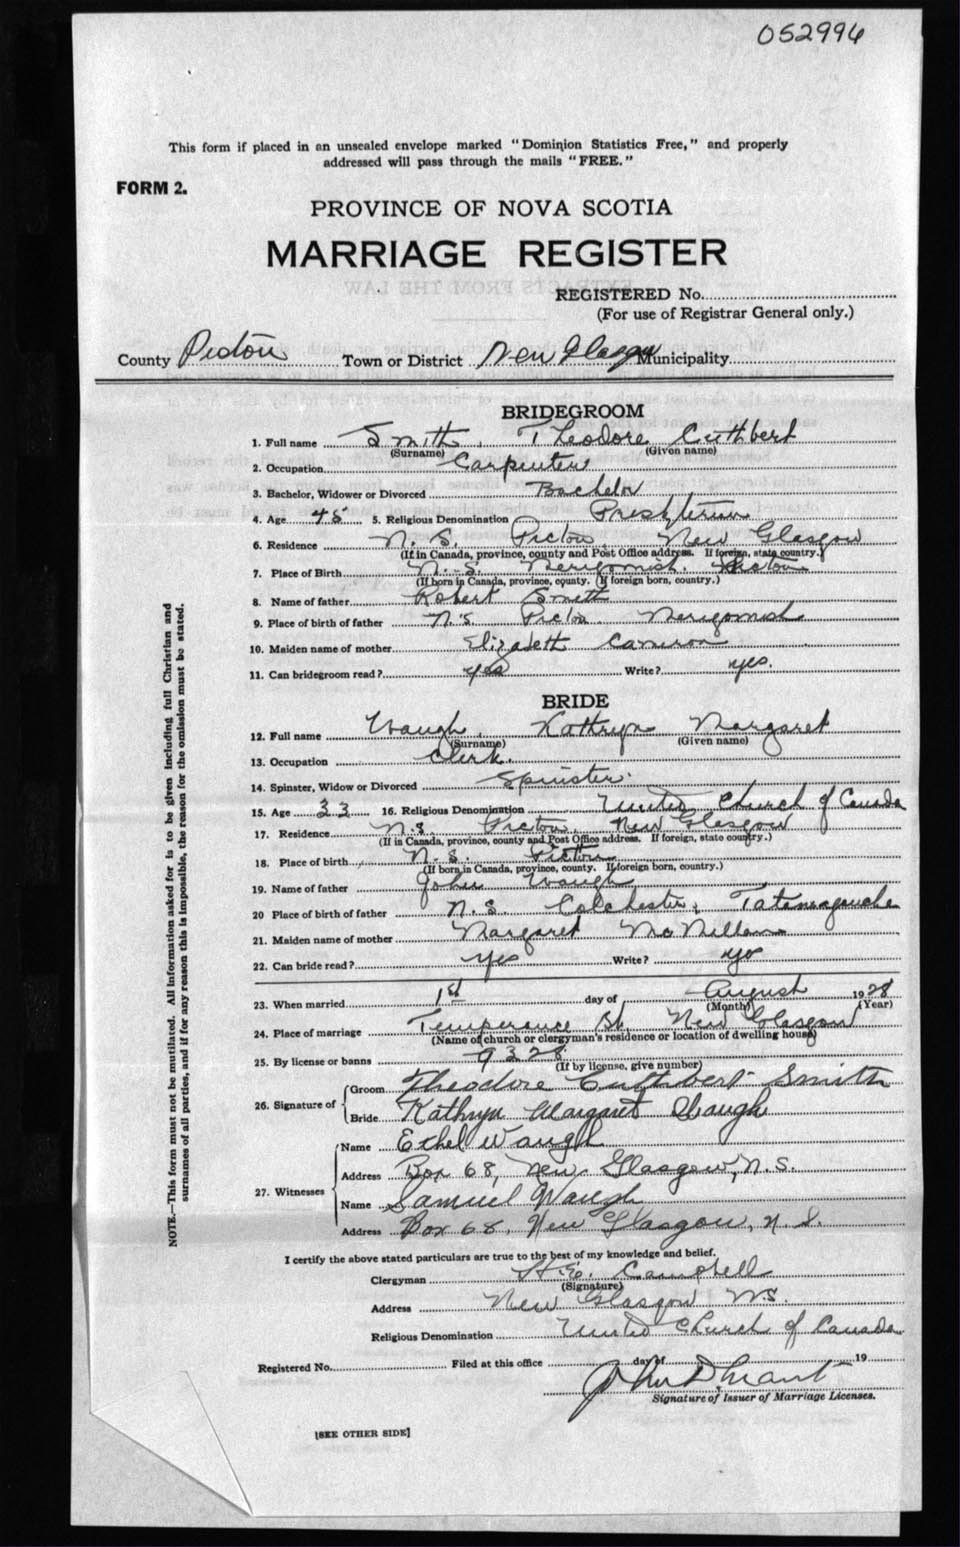 052996
This form if placed in an unsealed envelope marked "Dominion Statistics Free," and properly
addressed will pass through the mails "FREE."
FORM 2.
PROVINCE OF NOVA SCOTIA
MARRIAGE REGISTER
REGISTERED No.
(For use of Registrar General only.)
County Pictou Town or District New Glasgow Municipality
BRIDEGROOM
1. Full name Smith, Theodore Cuthbert
(Surname) (Given name)
2. Occupation Carpenter
3. Bachelor, Widower or Divorced Bachelor
4. Age 45 5. Religious Denomination Presbyterian
6. Residence N.S. Pictou New Glasgow
(If in Canada, province, county and Post Office address. If foreign, state country.)
7. Place of Birth N.S. Merigomish Pictou
(If born in Canada, province, county. (If foreign born, country.)
8. Name of father Robert Smith
9. Place of birth of father N.S. Pictou Merigomish
10. Maiden name of mother Elizabeth Cameron
11. Can bridegroom read? yes Write? yes.
BRIDE
12. Full name Waugh, Kathryn Margaret
(Surname) (Given name)
13. Occupation Clerk.
14. Spinster, Widow or Divorced Spinster.
15. Age 33 16. Religious Denomination United Church of Canada
17. Residence N.S. Pictou, New Glasgow
(If in Canada, province, county and Post Office address. If foreign, state country.)
18. Place of birth N.S. Pictou
(If born in Canada, province, county. If foreign born, country.)
19. Name of father John Waugh
20 Place of birth of father N.S. Colchester, Tatamagouche
21. Maiden name of mother Margaret McMillan
22. Can bride read? yes Write? yes
23. When married 1st day of August 1928
(Month) (Year)
24. Place of marriage Temperance St. New Glasgow
(Name of church or clergyman's residence or location of dwelling house)
25. By license or banns 9328
(If by license, give number)
26. Signature of Groom Theodore Cuthbert Smith
Bride Kathryn Margaret Waugh
27. Witnesses Name Ethel Waugh
Address Box 68, New Glasgow, N.S.
Name Samuel Waugh
Address Box 68, New Glasgow, N.S.
I certify the above stated particulars are true to the best of my knowledge and belief.
Clergyman Campbell
(Signature)
Address New Glasgow N.S.
Religious Denomination United Church of Canada
Registered No. Filed at this office day of 19
John D. Grant
Signature of Issuer of Marriage Licenses.
[SEE OTHER SIDE]
NOTE.—This form must not be mutilated. All information asked for is to be given including full Christian and
surnames of all parties, and if for any reason this is impossible, the reason for the omission must be stated.